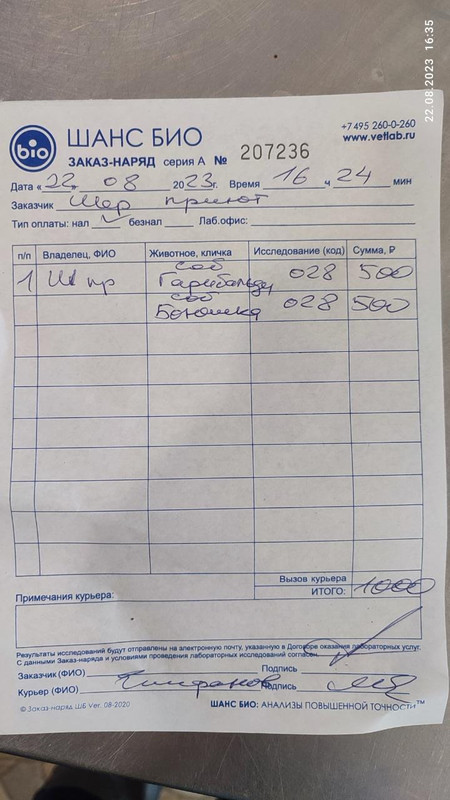 22.08.2023 16:35
bio
ШАНС БИО
+7 495 260-0-260
www.vetlab.ru
ЗАКАЗ-НАРЯД серия А № 207236
Дата «22» 08 2023г. Время 16 ч 24 мин
Заказчик Шер приют
Тип оплаты: нал ✓ безнал Лаб.офис:
п/п Владелец, ФИО Животное, кличка Исследование (код) Сумма, ₽
1 Ш пр соб Гарибальди 028 500
соб Бонюшка 028 500
Вызов курьера
ИТОГО: 1000
Примечания курьера:
Результаты исследований будут отправлены на электронную почту, указанную в Договоре оказания лабораторных услуг.
С данными Заказ-наряда и условиями проведения лабораторных исследований согласен.
Заказчик (ФИО) Подпись
Курьер (ФИО) Подпись
© Заказ-наряд ШБ Ver. 08-2020
ШАНС БИО: АНАЛИЗЫ ПОВЫШЕННОЙ ТОЧНОСТИ™